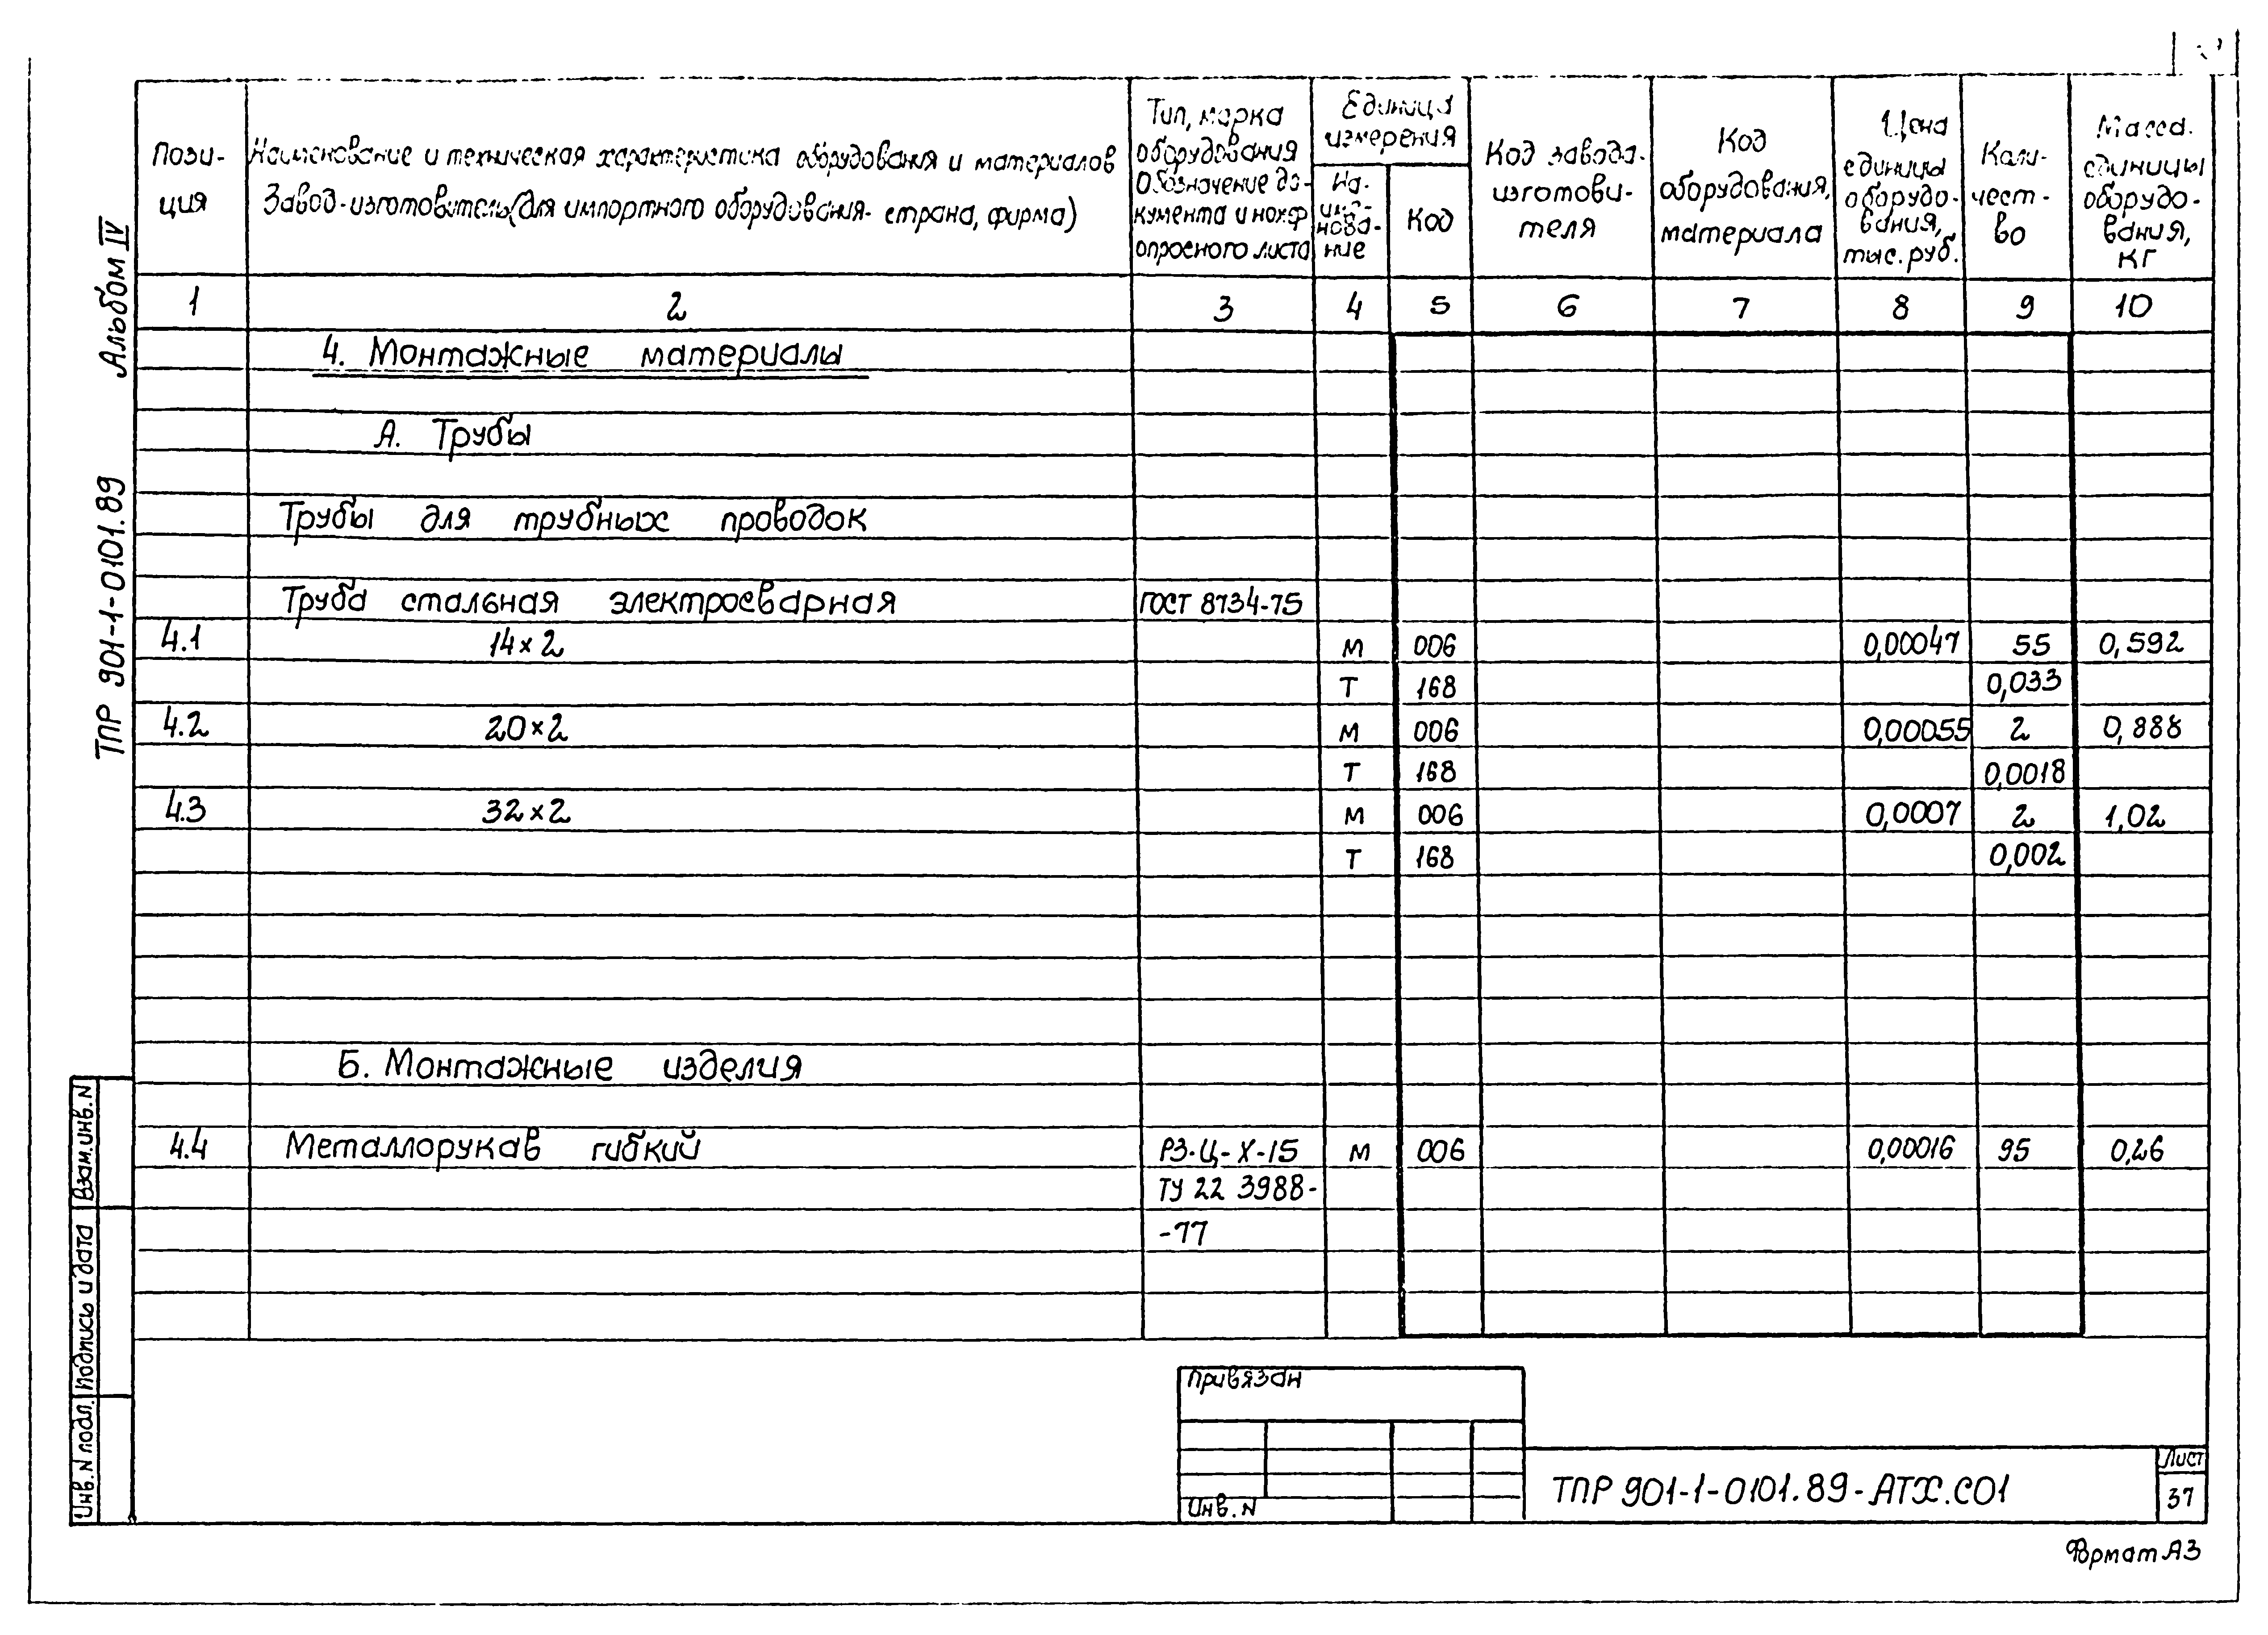 Альбом IV
ТПР 901-1-0101.89
Пози-
ция
Наименование и техническая характеристика оборудования и материалов
Завод-изготовитель(для импортного оборудования- страна, фирма)
Тип, марка
оборудования
Обозначение до-
кумента и номер
опросного листа
Единица
измерения
На-
име-
нова-
ние
Код
Код завода-
изготови-
теля
Код
оборудования,
материала
Цена
единицы
оборудо-
вания,
тыс.руб.
Коли-
чест-
во
Масса
единицы
оборудо-
вания,
кг
1 2 3 4 5 6 7 8 9 10
4. Монтажные материалы
А. Трубы
Трубы для трубных проводок
Труба стальная электросварная ГОСТ 8734-75
4.1 14×2 м 006 0,00047 55 0,592
т 168 0,033
4.2 20×2 м 006 0,00055 2 0,888
т 168 0,0018
4.3 32×2 м 006 0,0007 2 1,02
т 168 0,002
Б. Монтажные изделия
4.4 Металлорукав гибкий РЗ-Ц-Х-15 м 006 0,00016 95 0,26
ТУ 22 3988-
-77
Взам.инв.N
Подпись и дата
Инв.N подл.
Привязан
Инв.N
ТПР 901-1-0101.89-АТХ.СО1
Лист
37
Формат А3